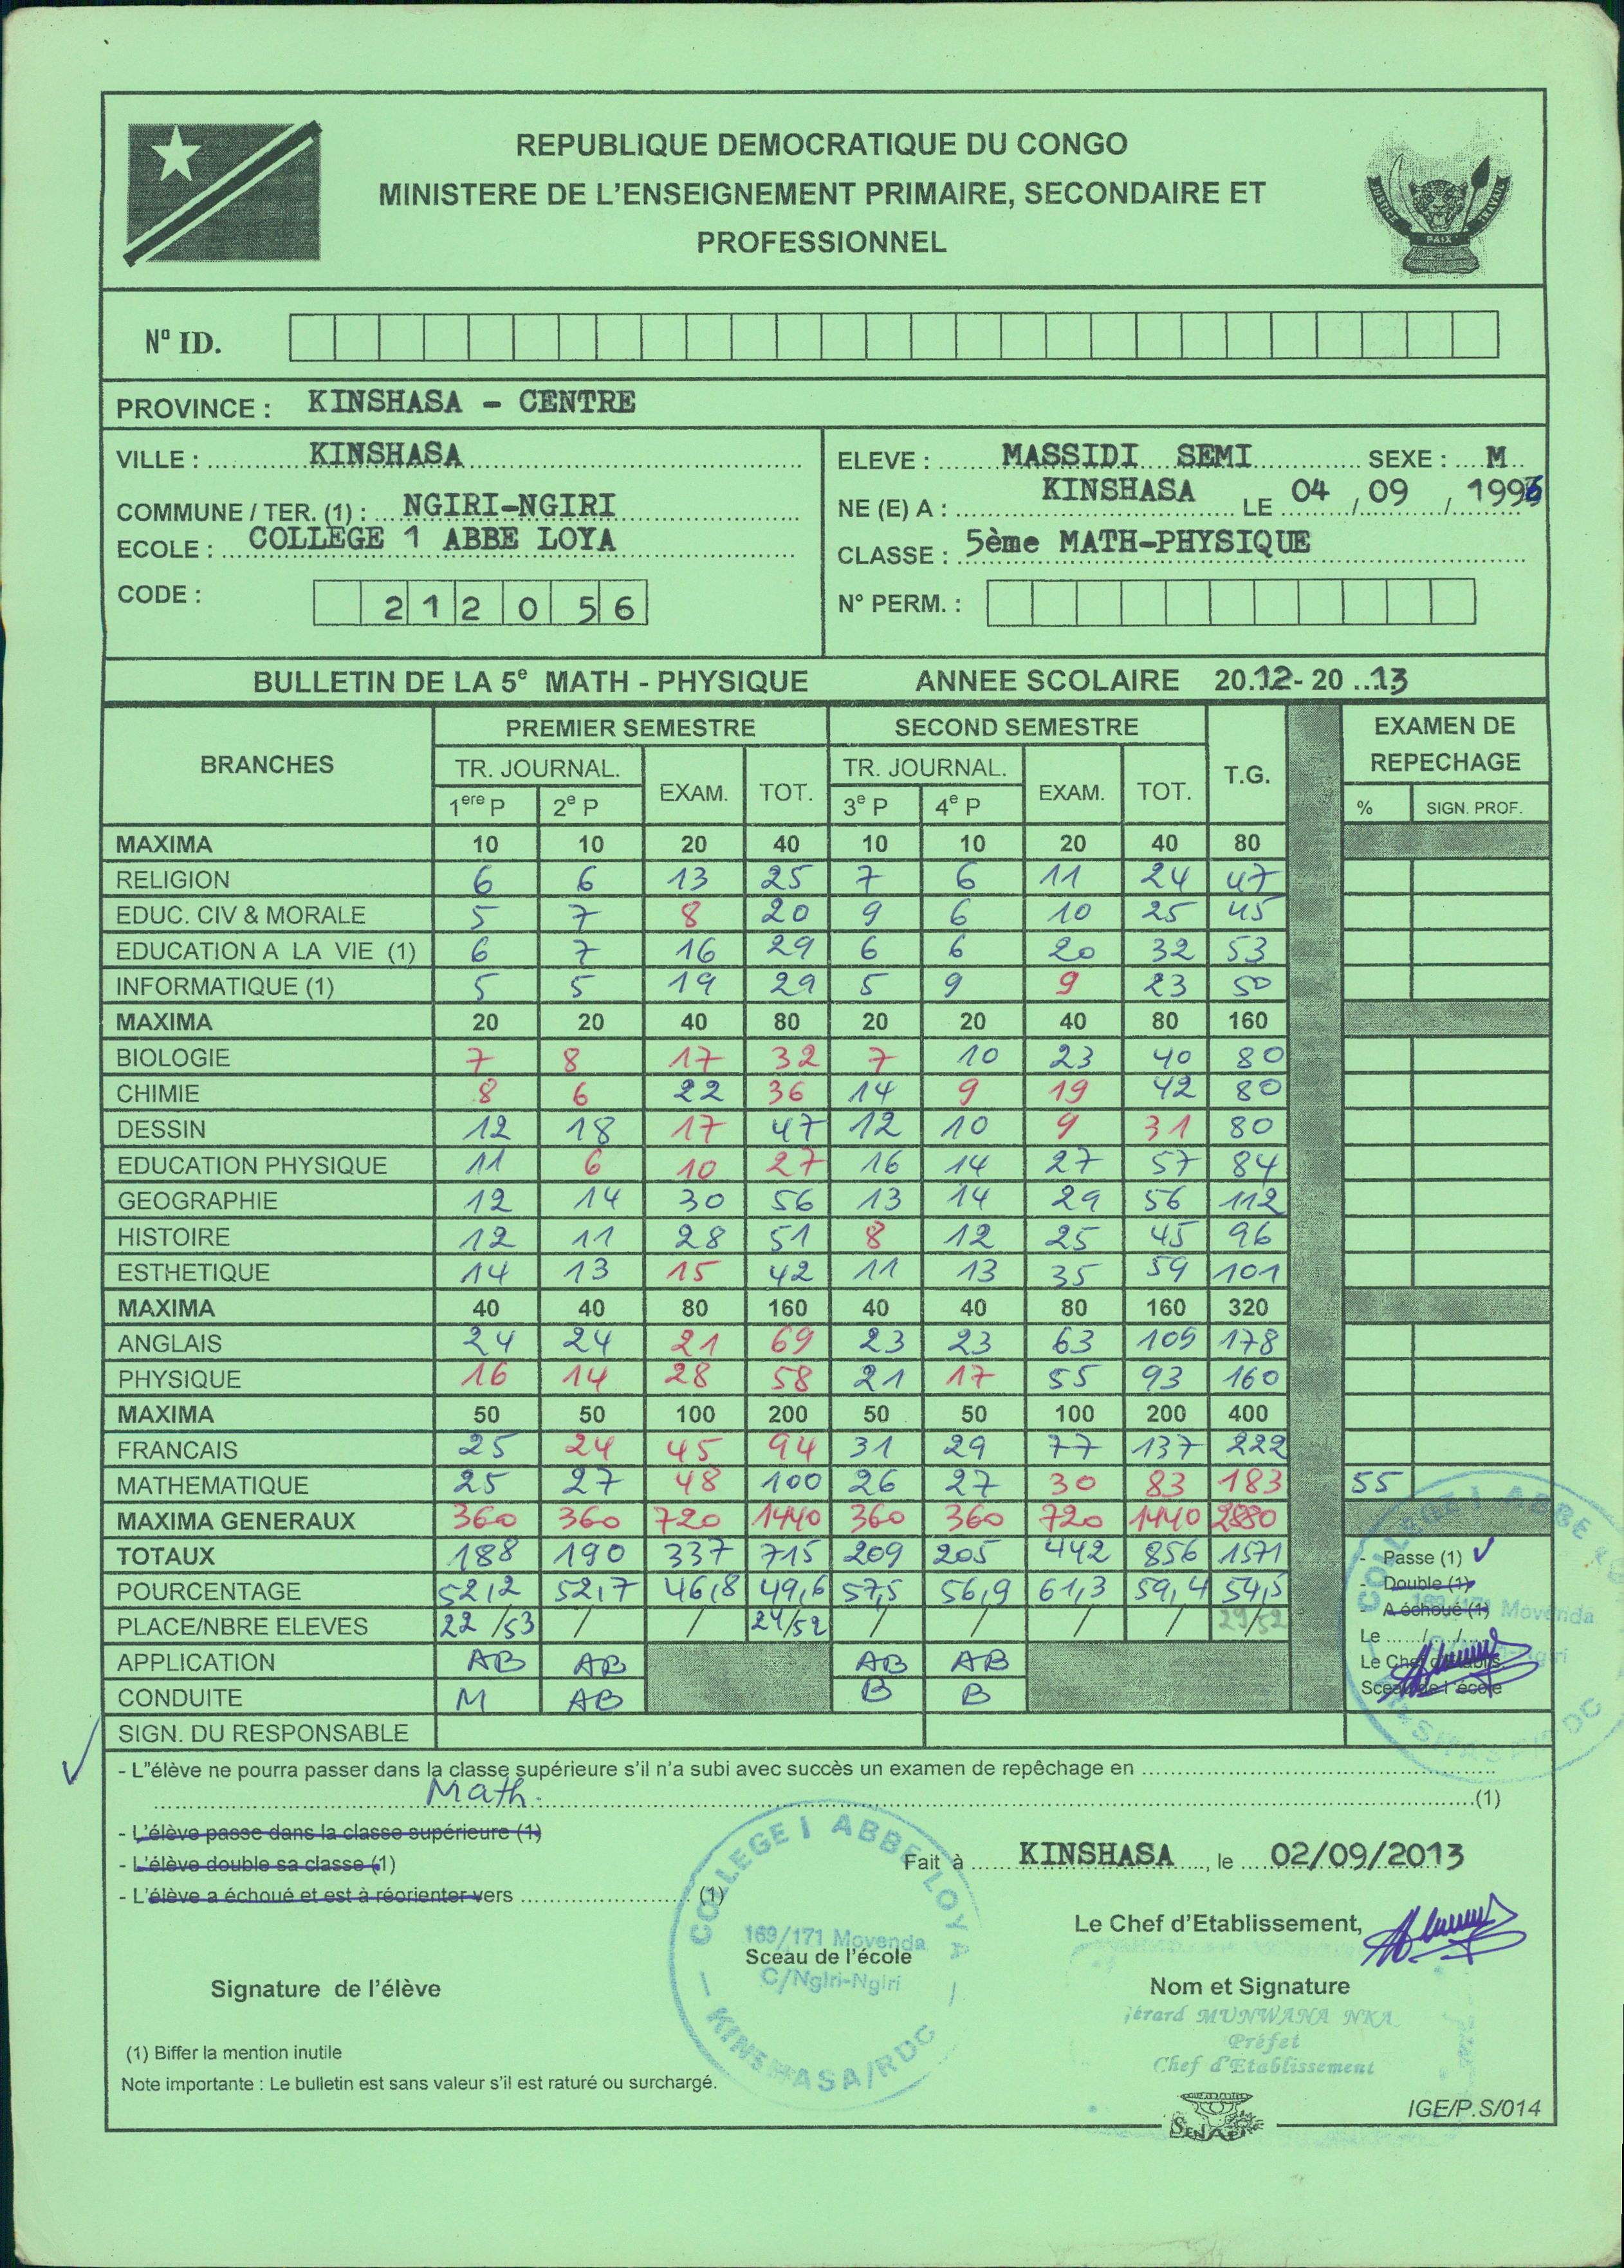 REPUBLIQUE DEMOCRATIQUE DU CONGO
MINISTERE DE L'ENSEIGNEMENT PRIMAIRE, SECONDAIRE ET
PROFESSIONNEL
JUSTICE PAIX TRAVAIL
N° ID.
PROVINCE : KINSHASA - CENTRE
VILLE : KINSHASA
COMMUNE / TER. (1) : NGIRI-NGIRI
ECOLE : COLLEGE 1 ABBE LOYA
CODE : 2 1 2 0 5 6
ELEVE : MASSIDI SEMI SEXE : M
NE (E) A : KINSHASA LE 04 / 09 / 1996
CLASSE : 5ème MATH-PHYSIQUE
N° PERM. :
BULLETIN DE LA 5e MATH - PHYSIQUE ANNEE SCOLAIRE 20.12- 20 ..13
BRANCHES PREMIER SEMESTRE SECOND SEMESTRE T.G. EXAMEN DE REPECHAGE
TR. JOURNAL. EXAM. TOT. TR. JOURNAL. EXAM. TOT.
1ere P 2e P 3e P 4e P % SIGN. PROF.
MAXIMA 10 10 20 40 10 10 20 40 80
RELIGION 6 6 13 25 7 6 11 24 47
EDUC. CIV & MORALE 5 7 8 20 9 6 10 25 45
EDUCATION A LA VIE (1) 6 7 16 29 6 6 20 32 53
INFORMATIQUE (1) 5 5 19 29 5 9 9 23 50
MAXIMA 20 20 40 80 20 20 40 80 160
BIOLOGIE 7 8 17 32 7 10 23 40 80
CHIMIE 8 6 22 36 14 9 19 42 80
DESSIN 12 18 17 47 12 10 9 31 80
EDUCATION PHYSIQUE 11 6 10 27 16 14 27 57 84
GEOGRAPHIE 12 14 30 56 13 14 29 56 112
HISTOIRE 12 11 28 51 8 12 25 45 96
ESTHETIQUE 14 13 15 42 11 13 35 59 101
MAXIMA 40 40 80 160 40 40 80 160 320
ANGLAIS 24 24 21 69 23 23 63 109 178
PHYSIQUE 16 14 28 58 21 17 55 93 160
MAXIMA 50 50 100 200 50 50 100 200 400
FRANCAIS 25 24 45 94 31 29 77 137 222
MATHEMATIQUE 25 27 48 100 26 27 30 83 183 55
MAXIMA GENERAUX 360 360 720 1440 360 360 720 1440 2880
TOTAUX 188 190 337 715 209 205 442 856 1571
POURCENTAGE 52,2 52,7 46,8 49,6 57,5 56,9 61,3 59,4 54,5
PLACE/NBRE ELEVES 22 /53 / / 24/52 / / / / 29/52
APPLICATION AB AB AB AB
CONDUITE M AB B B
SIGN. DU RESPONSABLE
- Passe (1) ✓
- Double (1)
- A échoué (1)
Le ....../....../......
Le Chef d'établis.
Sceau de l'école
✓
- L"élève ne pourra passer dans la classe supérieure s'il n'a subi avec succès un examen de repêchage en
Math. (1)
- L'élève passe dans la classe supérieure (1)
- L'élève double sa classe (1)
- L'élève a échoué et est à réorienter vers (1)
Fait à KINSHASA, le 02/09/2013
Le Chef d'Etablissement,
COLLEGE I ABBE LOYA
169/171 Movenda
Sceau de l'école
C/Ngiri-Ngiri
KINSHASA/RDC
Signature de l'élève
Nom et Signature
Gérard MUNWANA NKA
Préfet
Chef d'Etablissement
(1) Biffer la mention inutile
Note importante : Le bulletin est sans valeur s'il est raturé ou surchargé.
SENAPI
IGE/P.S/014